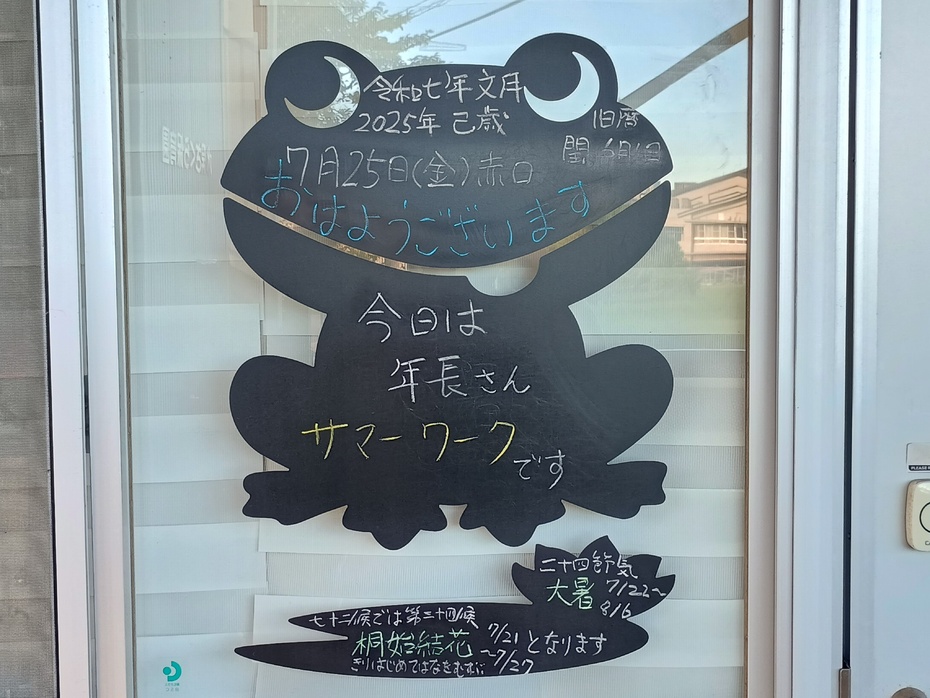 令和七年文月
2025年 己歳
旧暦
閏6月1日
7月25日(金)赤口
おはようございます
今日は
年長さん
サマーワーク
です
二十四節気
大暑 7/22~
8/6
七十二候では第三十四候
桐始結花 7/21~7/27 となります
きりはじめてはなをむすぶ